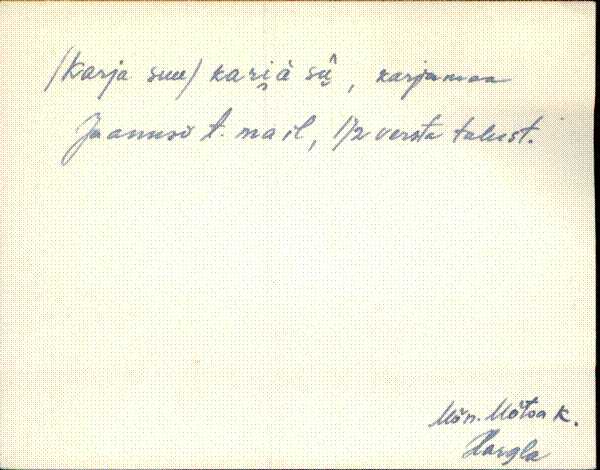 /Karja suu/ kari̯à sū̬, karjamaa
Jaanusõ t. mail, 1/2 versta talust.
Mõn. Mõtsa k.
Hargla